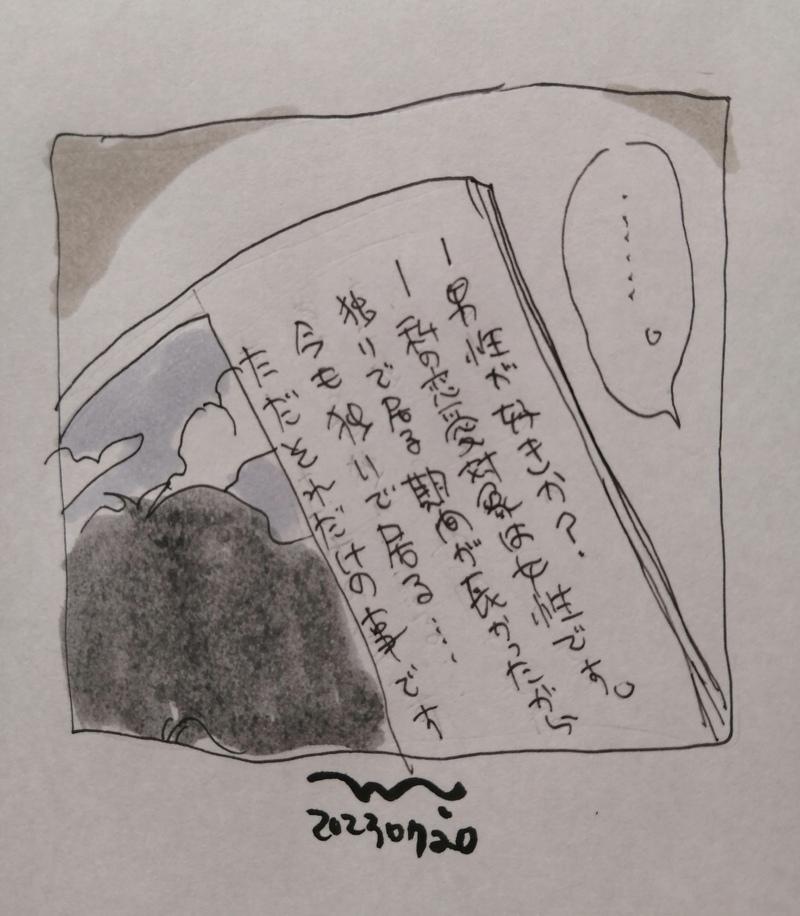 ........。
ー男性が好きか?
ー私の恋愛対象は女性です。
独りで居る期間が長かったから
今も独りで居る…
ただそれだけの事です
20230720